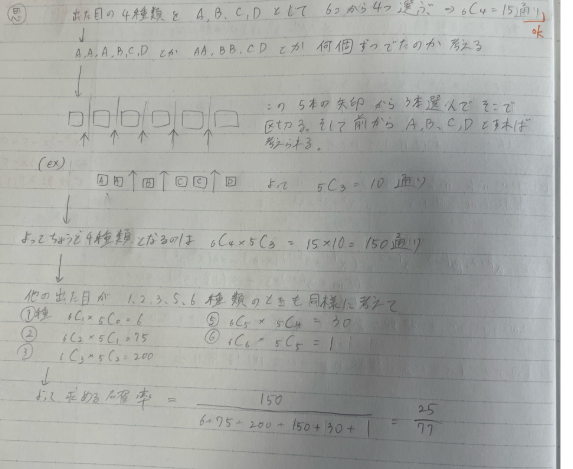 思 出た目の4種類を A, B, C, D として 6つから4つ選ぶ ⇒ ₆C₄ = 15通り ok
↓
A, A, A, B, C, D とか AA, BB, CD とか 何個ずつでたのか 考える
↓
この 5本の矢印から3本選んでそこで
区切る。そして前から A, B, C, D とすれば
考えられる。
(ex)
A A ↑ B ↑ C C ↑ D よって ₅C₃ = 10 通り
↓
よってちょうど4種類となるのは ₆C₄ × ₅C₃ = 15 × 10 = 150通り
↓
他の出た目が 1, 2, 3, 5, 6 種類のときも同様に考えて
①種 ₆C₁ × ₅C₀ = 6 ⑤ ₆C₅ × ₅C₄ = 30
② ₆C₂ × ₅C₁ = 75 ⑥ ₆C₆ × ₅C₅ = 1
③ ₆C₃ × ₅C₂ = 200
↓
よって 求める確率 = 150 / (6+75+200+150+30+1) = 25/77